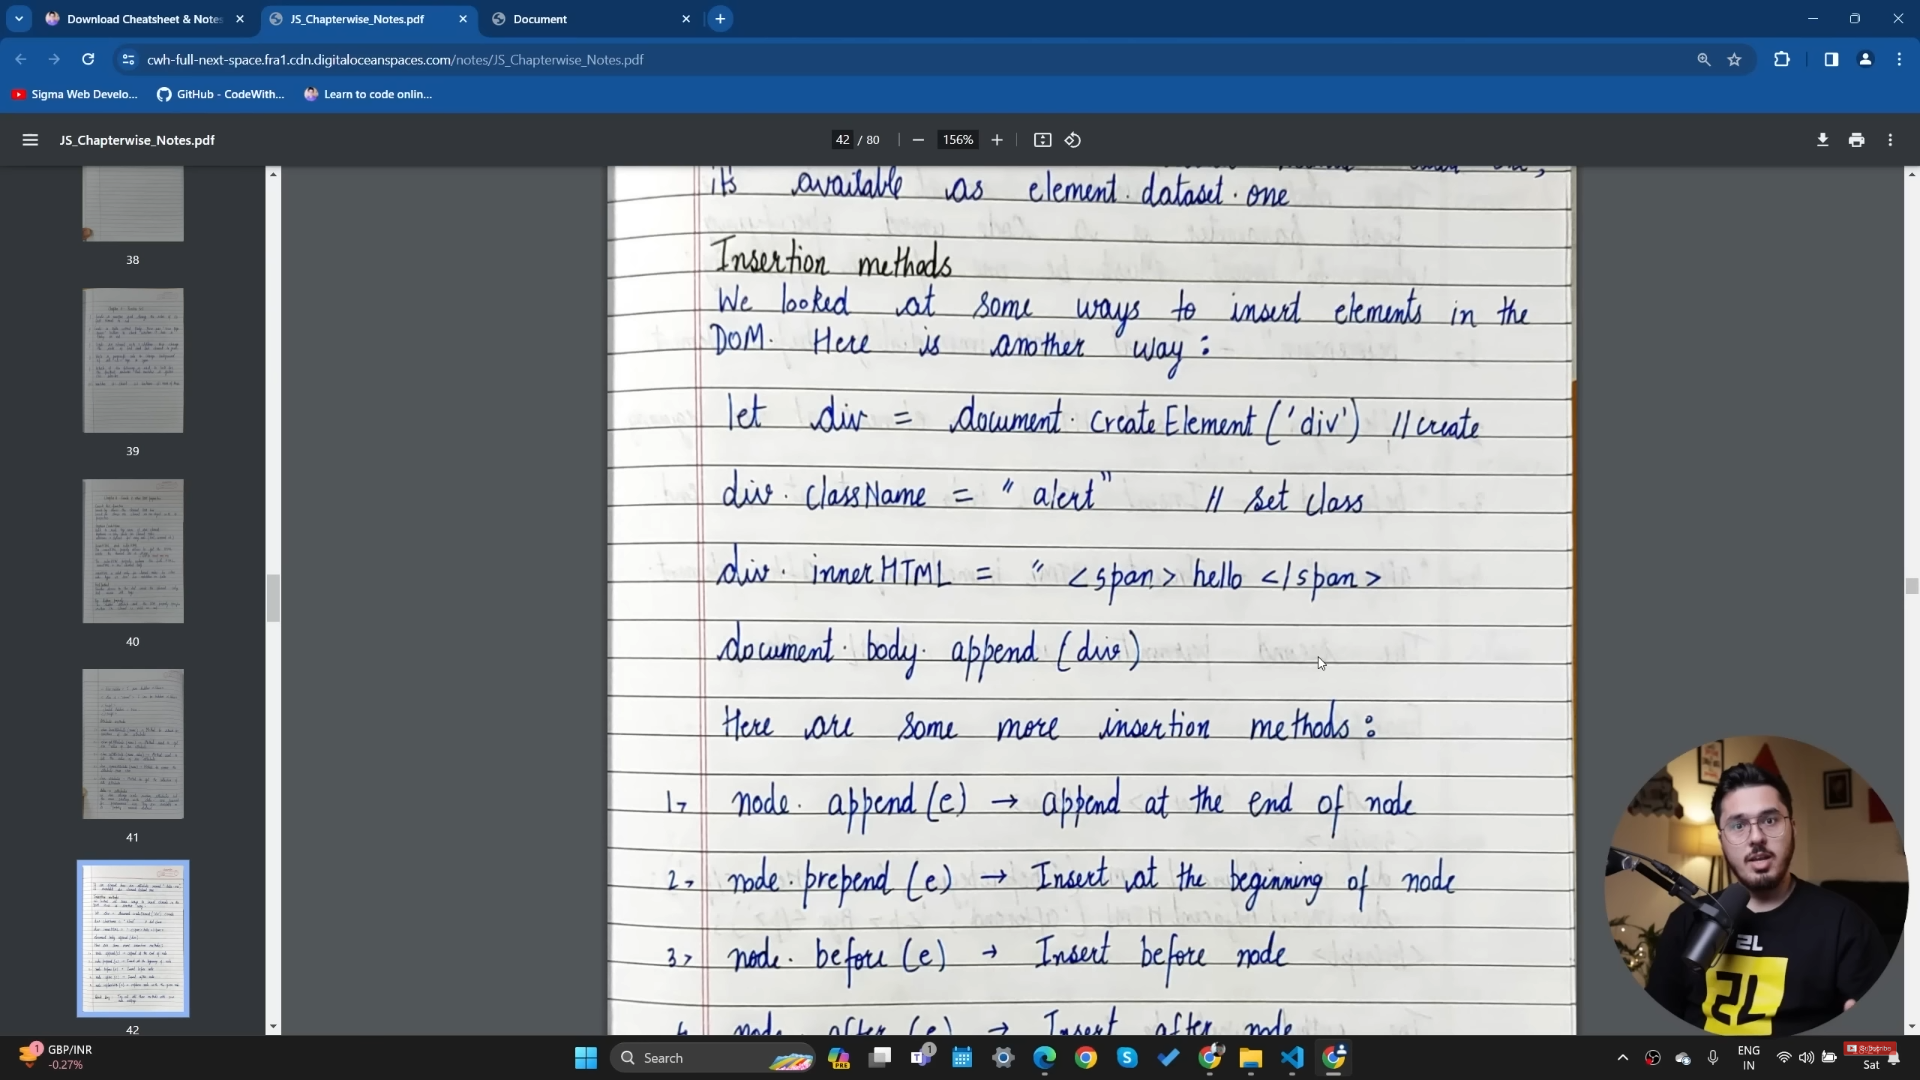 Download Cheatsheet & Notes
JS_Chapterwise_Notes.pdf
Document
cwh-full-next-space.fra1.cdn.digitaloceanspaces.com/notes/JS_Chapterwise_Notes.pdf
Sigma Web Develo...
GitHub - CodeWith...
Learn to code onlin...
JS_Chapterwise_Notes.pdf
42 / 80
156%
38
39
40
41
42
its available as element.dataset.one
Insertion methods
We looked at some ways to insert elements in the
DOM. Here is another way :
let div = document.createElement('div') // create
div.className = "alert" // set class
div.innerHTML = "<span> hello </span>
document.body.append(div)
Here are some more insertion methods :
1> node.append(e) → append at the end of node
2> node.prepend(e) → Insert at the beginning of node
3> node.before(e) → Insert before node
4 node after (e) → Insert after node
2L
2L
1
GBP/INR
-0.27%
Search
PRE
1
ENG
IN
Subscribe
Sat